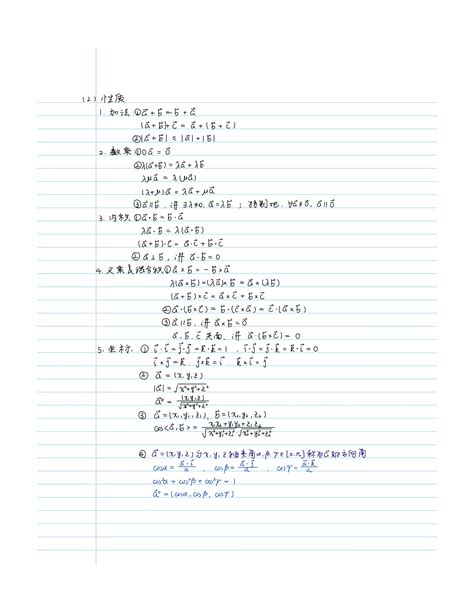 (2) 性质
1. 加法 ① a⃗ + b⃗ = b⃗ + a⃗
(a⃗ + b⃗) + c⃗ = a⃗ + (b⃗ + c⃗)
② |a⃗ + b⃗| ≤ |a⃗| + |b⃗|
2. 数乘 ① 0a⃗ = 0⃗
② λ(a⃗+b⃗) = λa⃗ + λb⃗
λμa⃗ = λ(μa⃗)
(λ+μ)a⃗ = λa⃗ + μa⃗
③ a⃗ ∥ b⃗, iff ∃λ≠0, a⃗ = λb⃗ ; 特别地, ∀a⃗≠0⃗, 0⃗ ∥ a⃗
3. 内积 ① a⃗·b⃗ = b⃗·a⃗
λa⃗·b⃗ = λ(a⃗·b⃗)
(a⃗+b⃗)·c⃗ = a⃗·c⃗ + b⃗·c⃗
② a⃗⊥b⃗, iff a⃗·b⃗ = 0
4. 叉乘 ① a⃗×b⃗ = -b⃗×a⃗
λ(a⃗×b⃗) = (λa⃗)×b⃗ = a⃗×(λb⃗)
(a⃗+b⃗)×c⃗ = a⃗×c⃗ + b⃗×c⃗
② a⃗·(b⃗×c⃗) = b⃗·(c⃗×a⃗) = c⃗·(a⃗×b⃗)
③ a⃗∥b⃗, iff a⃗×b⃗ = 0⃗
a⃗, b⃗, c⃗ 共面, iff a⃗·(b⃗×c⃗) = 0
5. 坐标 ① i⃗·i⃗ = j⃗·j⃗ = k⃗·k⃗ = 1 , i⃗·j⃗ = j⃗·k⃗ = k⃗·i⃗ = 0
i⃗×j⃗ = k⃗ , j⃗×k⃗ = i⃗ , k⃗×i⃗ = j⃗
② a⃗ = (x, y, z)
|a⃗| = √(x²+y²+z²)
a⃗⁰ = (x, y, z)/√(x²+y²+z²)
③ a⃗ = (x₁, y₁, z₁), b⃗ = (x₂, y₂, z₂)
cos<a⃗, b⃗> = (x₁x₂ + y₁y₂ + z₁z₂)/(√(x₁²+y₁²+z₁²) √(x₂²+y₂²+z₂²))
a⃗ = (x, y, z) 与 x, y, z 轴夹角 α, β, γ ∈ [0, π] 称为 a⃗ 的方向角
cosα = a⃗·i⃗/a , cosβ = a⃗·j⃗/a , cosγ = a⃗·k⃗/a
cos²α + cos²β + cos²γ = 1
a⃗⁰ = (cosα, cosβ, cosγ)